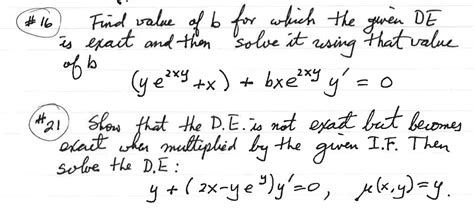 #16 Find value of b for which the given DE
is exact and then solve it using that value
of b
(y e^{2xy} + x) + bx e^{2xy} y' = 0
#21 Show that the D.E. is not exact but becomes
exact when multiplied by the given I.F. Then
solve the D.E:
y + (2x - y e^y) y' = 0, μ(x,y) = y.